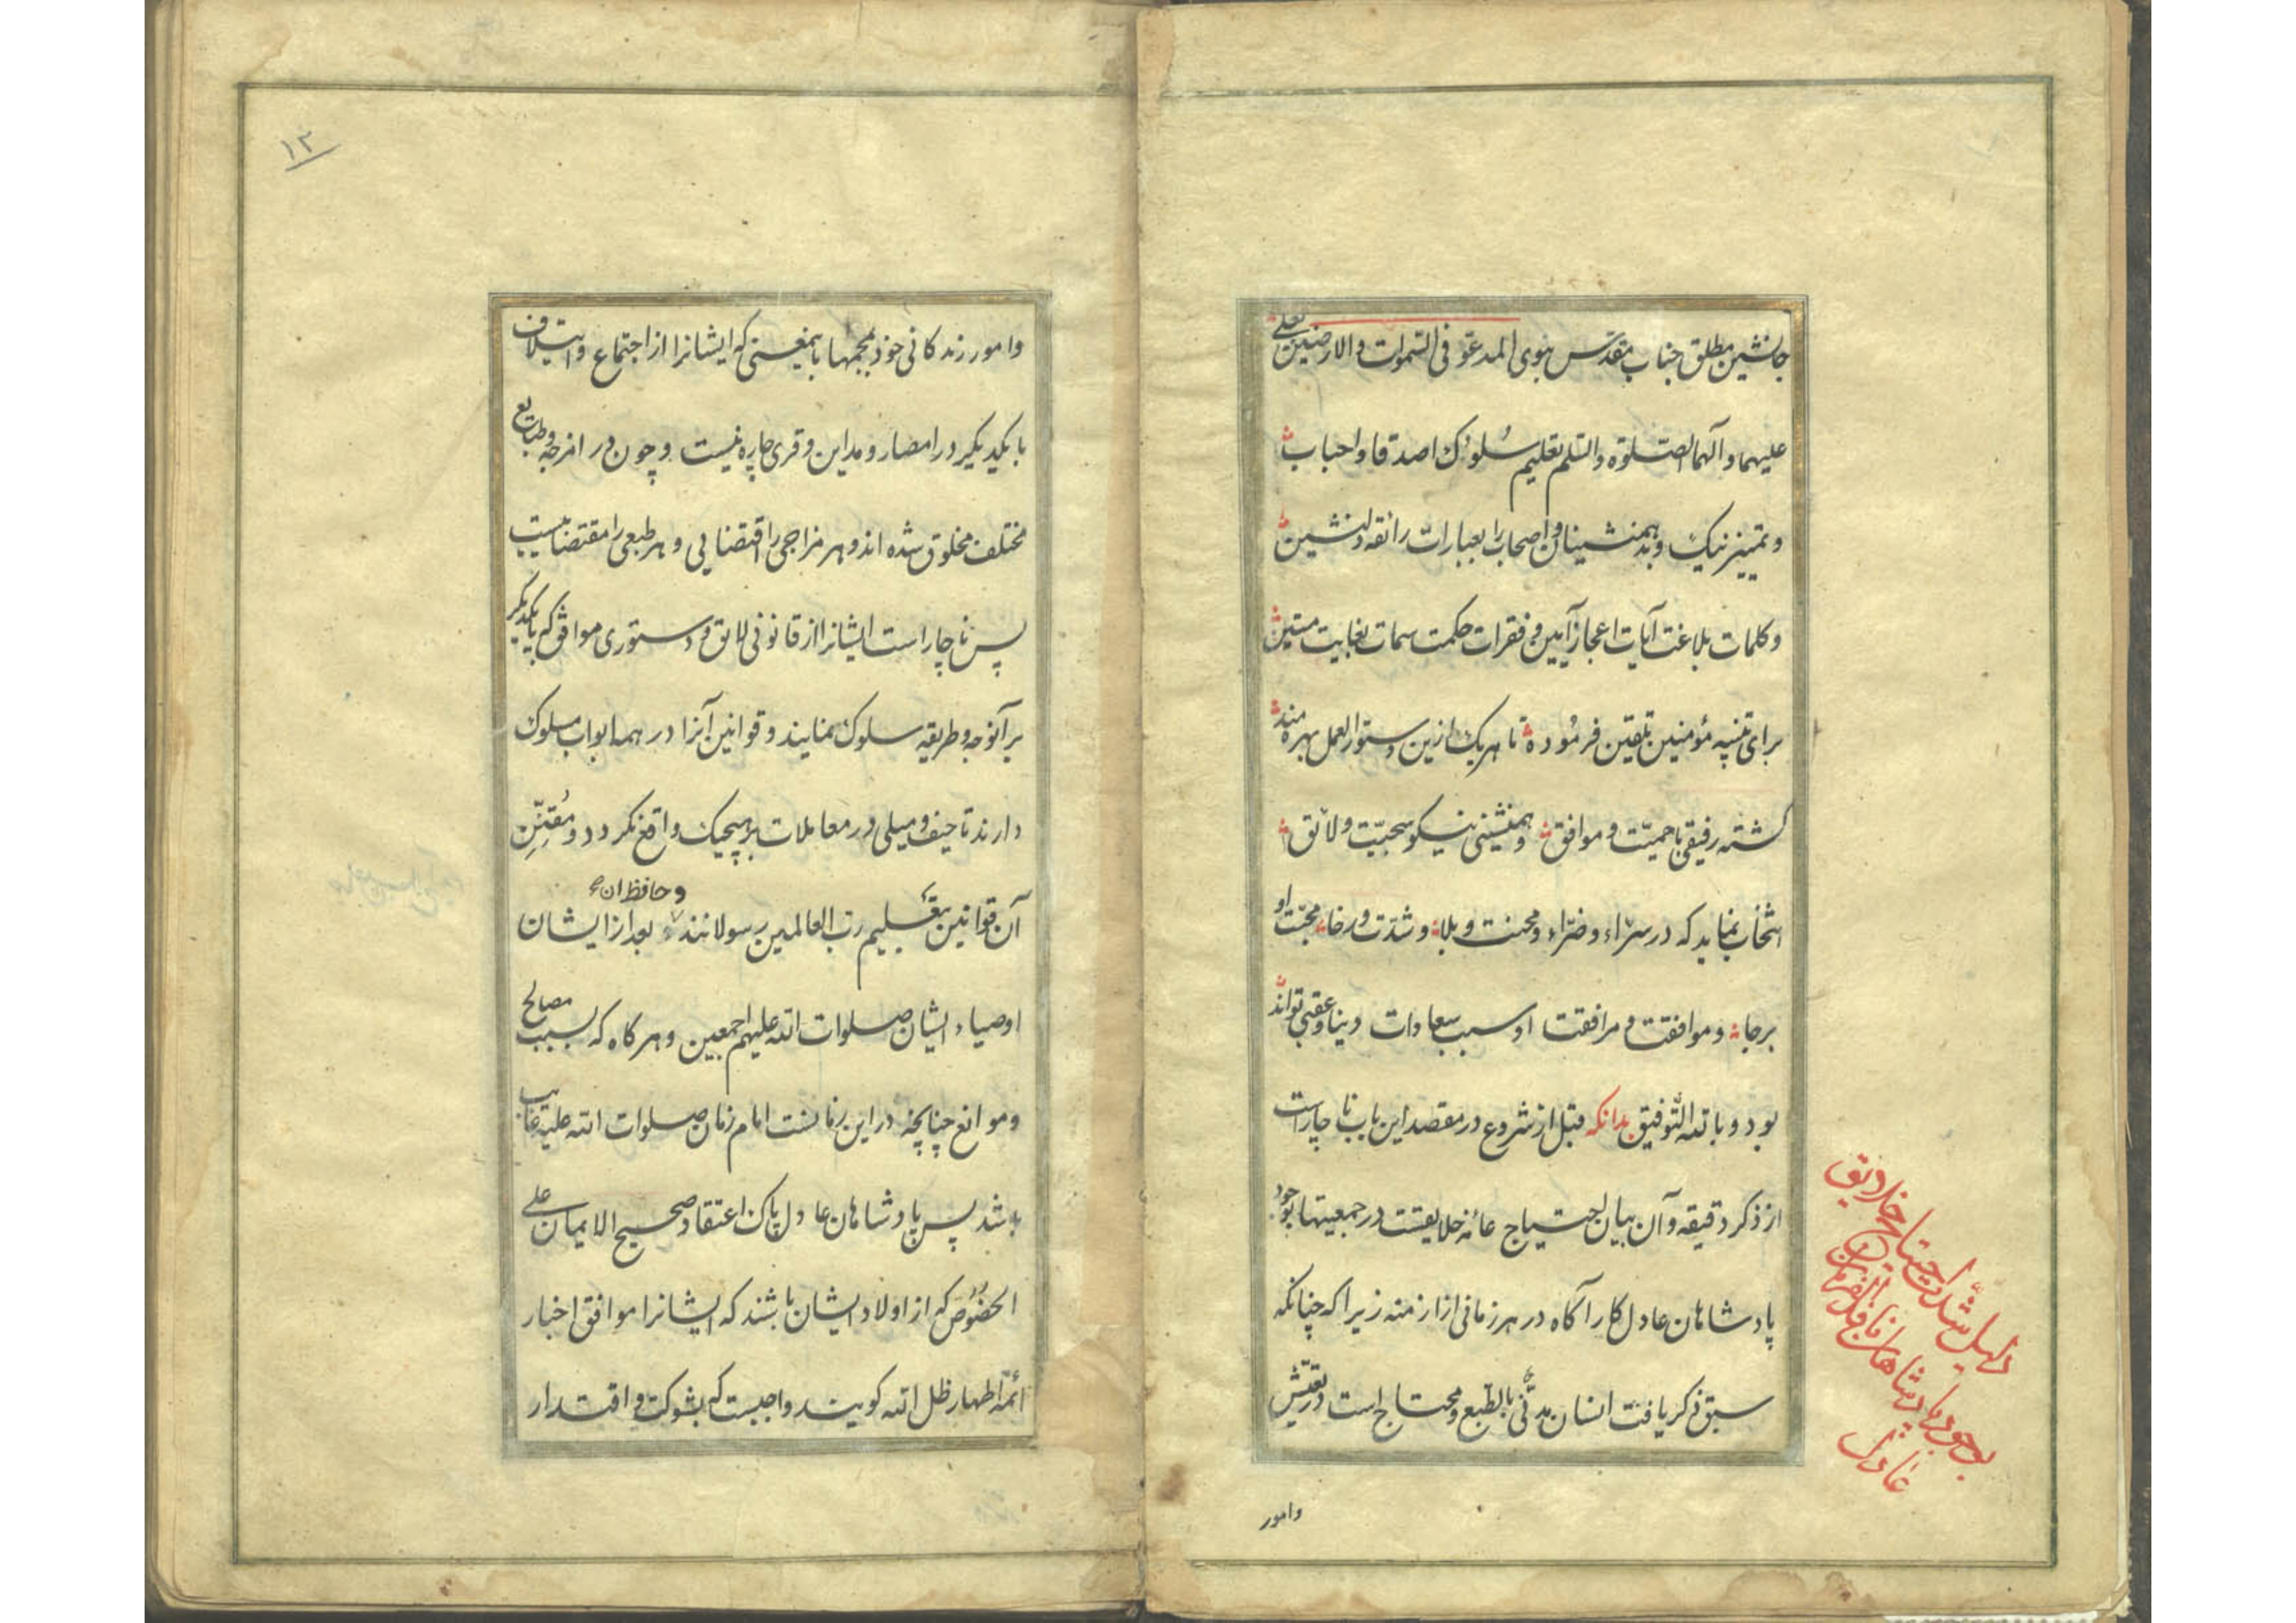 جانشین مطلق جناب مقدس نبوی المدعو فی السموات والارضین بعلی
علیهما وآلهما الصلوة والسلم تعلیم سلوک اصدقا واحباب
وتمییز نیک وبد همنشینان واصحاب را بعبارات رائقه دلنشین
وکلمات بلاغت آیات اعجاز آیین و فقرات حکمت سمات بغایت متین
برای تنبیه مؤمنین تلقین فرموده تا هریک ازین دستور العمل بهره مند
کشته رفیقی باحمیّت و موافق وهمنشینی نیکو سجیّت ولائق
انتخاب نماید که در سرّاء وضرّاء ومحنت و بلا وشدّت ورخا محبّت او
برجا وموافقت و مرافقت او سبب سعادات دنیا وعقبی تواند
بود و بالله التّوفیق بدانکه قبل از شروع در مقصد این باب ناچار است
از ذکر دقیقه وآن بیان احتیاج عامّه خلایقست در جمعیتها بوجود
پادشاهان عادل کارآکاه در هر زمانی از ازمنه زیرا که چنانکه
سبق ذکر یافت انسان مدنّی بالطّبع ومحتاج است در تعیّش
وامور
دلیل شدّت احتیاج خلایق
بوجود پادشاهان نافذ الفرمان
عادل
۱۲
وامور زندکانی خود بجمعها باینمعنی که ایشانرا از اجتماع وایتلاف
با یکدیکر در امصار ومداین وقری چاره نیست وچون در امزجه وطبایع
مختلف مخلوق شده اند وهر مزاجی را اقتضایی وهر طبعی را مقتضاییست
پس ناچار است ایشانرا از قانونی لایق ودستوری موافق که با یکدیکر
برآنوجه وطریقه سلوک نمایند وقوانین آنرا در همه ابواب مسلوک
دارند تا حیف ومیلی در معاملات بر هیچیک واقع نکردد ومُقنّنِ
وحافظ ان
آن قوانین بتعلیم رب العالمین رسولانند وبعد از ایشان
اوصیاء ایشان صلوات الله علیهم اجمعین وهرکاه که بسبب مصالح
وموانع چنانچه در این زمانست امام زمان صلوات الله علیه غایب
باشد پس پادشاهان عادل پاک اعتقاد صحیح الایمان علی
الخصوص که از اولاد ایشان باشند که ایشانرا موافق اخبار
ائمّه اطهار ظل الله کویند واجبست که بشوکت و اقتدار